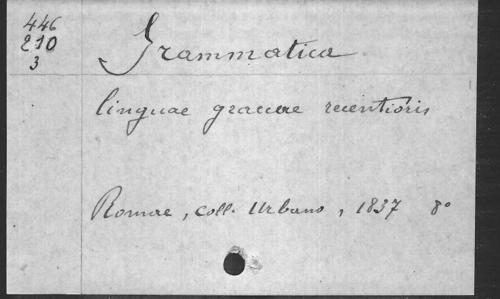 446
210
3
Grammatica
linguae graecae recentioris
Romae, coll. Urbano, 1837 8°